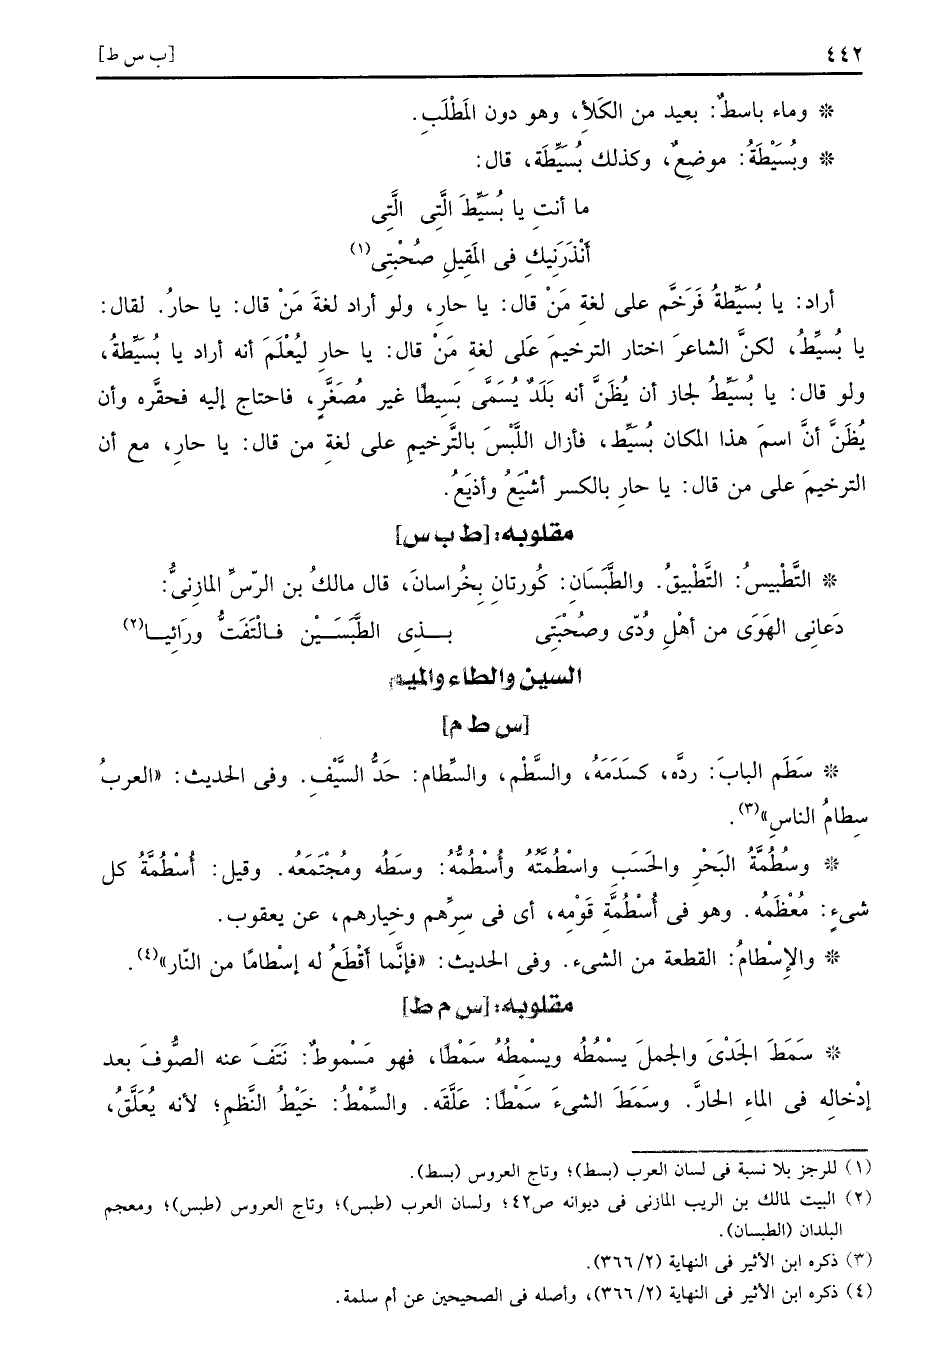 ٤٤٢ [ب س ط]
* وماء باسطٌ: بعيد من الكَلأِ، وهو دون المَطْلَبِ.
* وبُسَيْطَةُ: موضعٌ، وكذلك بُسَيِّطَة، قال:
ما أنتِ يا بُسَيِّطَ الَّتِى الَّتِى
أَنْذَرَنِيكِ فى المَقِيلِ صُحْبَتِى(١)
أراد: يا بُسَيِّطةُ فَرَخَّم على لغة مَنْ قال: يا حارِ، ولو أراد لغةَ مَنْ قال: يا حارُ. لقال:
يا بُسيِّطُ، لكنَّ الشاعرَ اختار الترخيمَ عَلَى لغةِ مَنْ قال: يا حارِ ليُعْلَمَ أنه أراد يا بُسَيِّطةُ،
ولو قال: يا بُسَيِّطُ لجاز أن يُظَنَّ أنه بَلَدٌ يُسَمَّى بَسِيطًا غير مُصَغَّرٍ، فاحتاج إليه فحقَّره وأن
يُظَنَّ أنَّ اسمَ هذا المكان بُسَيِّط، فأزال اللَّبْسَ بالتَّرخيمِ على لغةِ من قال: يا حارِ، مع أن
الترخيمَ على من قال: يا حارِ بالكسر أشْيَعُ وأذيَعُ.
مقلوبه: [ط ب س]
* التَّطْبيسُ: التَّطْبيقُ. والطَّبَسَان: كُورتانِ بِخُراسانَ، قال مالكُ بن الرّسِّ المازنىُّ:
دَعانِى الهَوَى من أهْلِ وُدِّى وصُحْبَتِى بــذِى الطَّبَسَــيْنِ فـالْتَفَتُّ ورَائِيـا(٢)
السين والطاء والميم
[س ط م]
* سَطَم البابَ: ردَّه، كسَدَمَهُ، والسَّطْم، والسِّطام: حَدُّ السَّيْفِ. وفى الحديث: «العربُ
سِطامُ الناسِ»(٣).
* وسُطُمَّةُ البَحْرِ والحَسَبِ واسْطُمَّتُهُ وأُسْطُمُّهُ: وسَطُه ومُجْتَمَعُه. وقيل: أُسْطُمَّةُ كل
شىءٍ: مُعْظَمُه. وهو فى أُسْطُمَّةِ قَوْمِه، أى فى سِرِّهم وخِيارهم، عن يعقوب.
* والإسْطامُ: القطعة من الشىء. وفى الحديث: «فإنَّما أقْطَعُ له إسْطامًا من النّار»(٤).
مقلوبه: [س م ط]
* سَمَطَ الجَدْىَ والجملَ يَسْمُطُه ويسْمِطُهُ سَمْطًا، فهو مَسْموطٌ: نَتَفَ عنه الصُّوفَ بعد
إدْخالِه فى الماءِ الحارِّ. وسَمَطَ الشىءَ سَمْطًا: علَّقَه. والسِّمْطُ: خَيْطُ النَّظمِ؛ لأنه يُعَلَّقُ،
(١) للرجز بلا نسبة فى لسان العرب (بسط)؛ وتاج العروس (بسط).
(٢) البيت لمالك بن الريب المازنى فى ديوانه ص٤٢؛ ولسان العرب (طبس)؛ وتاج العروس (طبس)؛ ومعجم
البلدان (الطبسان).
(٣) ذكره ابن الأثير فى النهاية (٢/ ٣٦٦).
(٤) ذكره ابن الأثير فى النهاية (٢/ ٣٦٦)، وأصله فى الصحيحين عن أم سلمة.